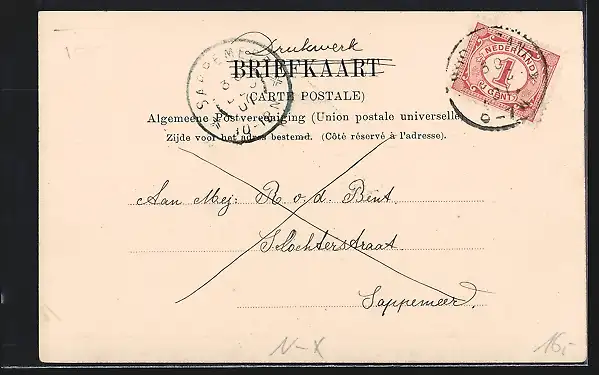 Drukwerk
BRIEFKAART
(CARTE POSTALE)
Algemeene Postvereeniging (Union postale universelle)
Zijde voor het adres bestemd. (Côté réservé à l'adresse).
NEDERLAND
1
CENT
SAPPEME
Aan Mej: R. v. d. Bent.
Slochterstraat.
Sappemeer.
N-X
16,-